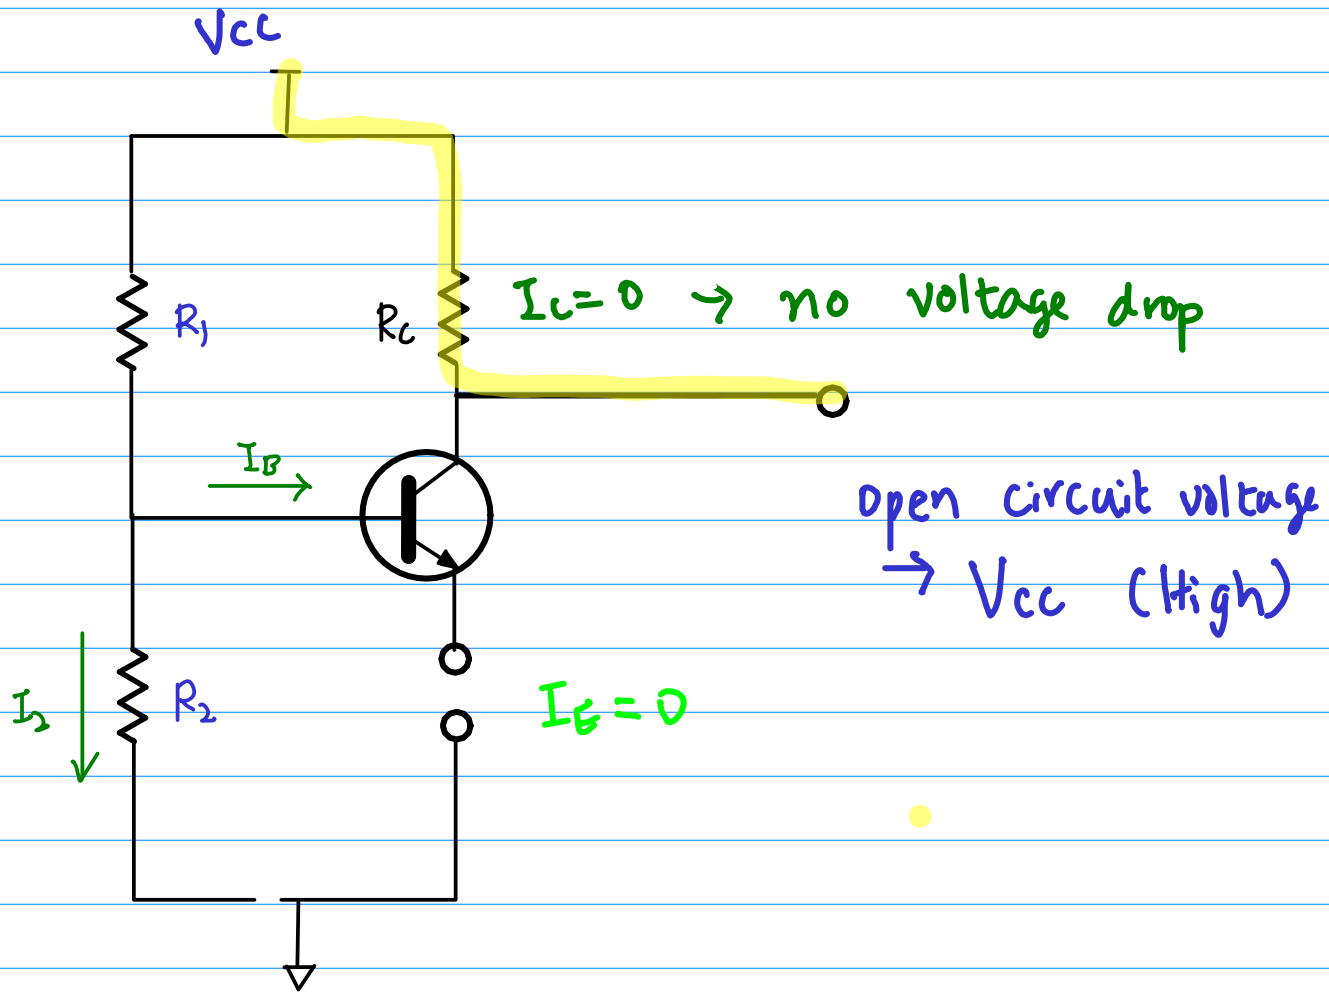 Vcc
R1
Rc
Ic=0 → no voltage drop
IB
open circuit voltage
→ Vcc (High)
I2
R2
IE=0